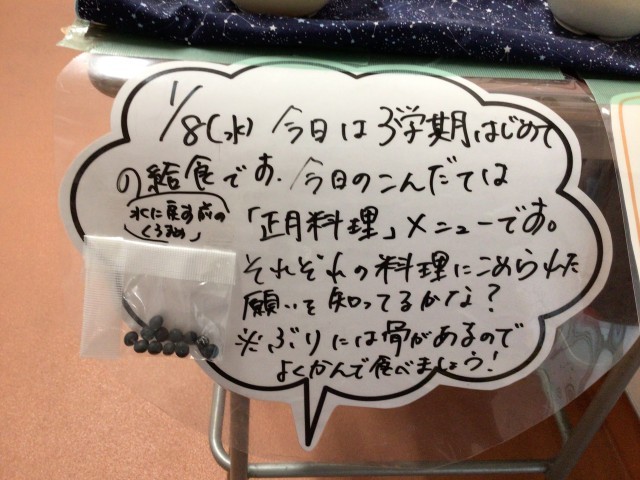 1/8(水) 今日は3学期はじめて
の給食です。今日のこんだては
水に戻す前の
くろまめ
「正月料理」メニューです。
それぞれの料理にこめられた
願いを知ってるかな?
※ぶりには骨があるので
よくかんで食べましょう!